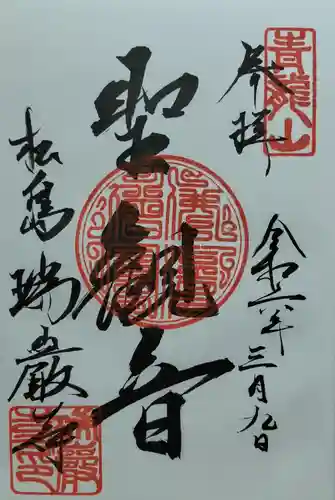 奉拝
青龍山
令和六年三月九日
聖観音
松島瑞巌寺